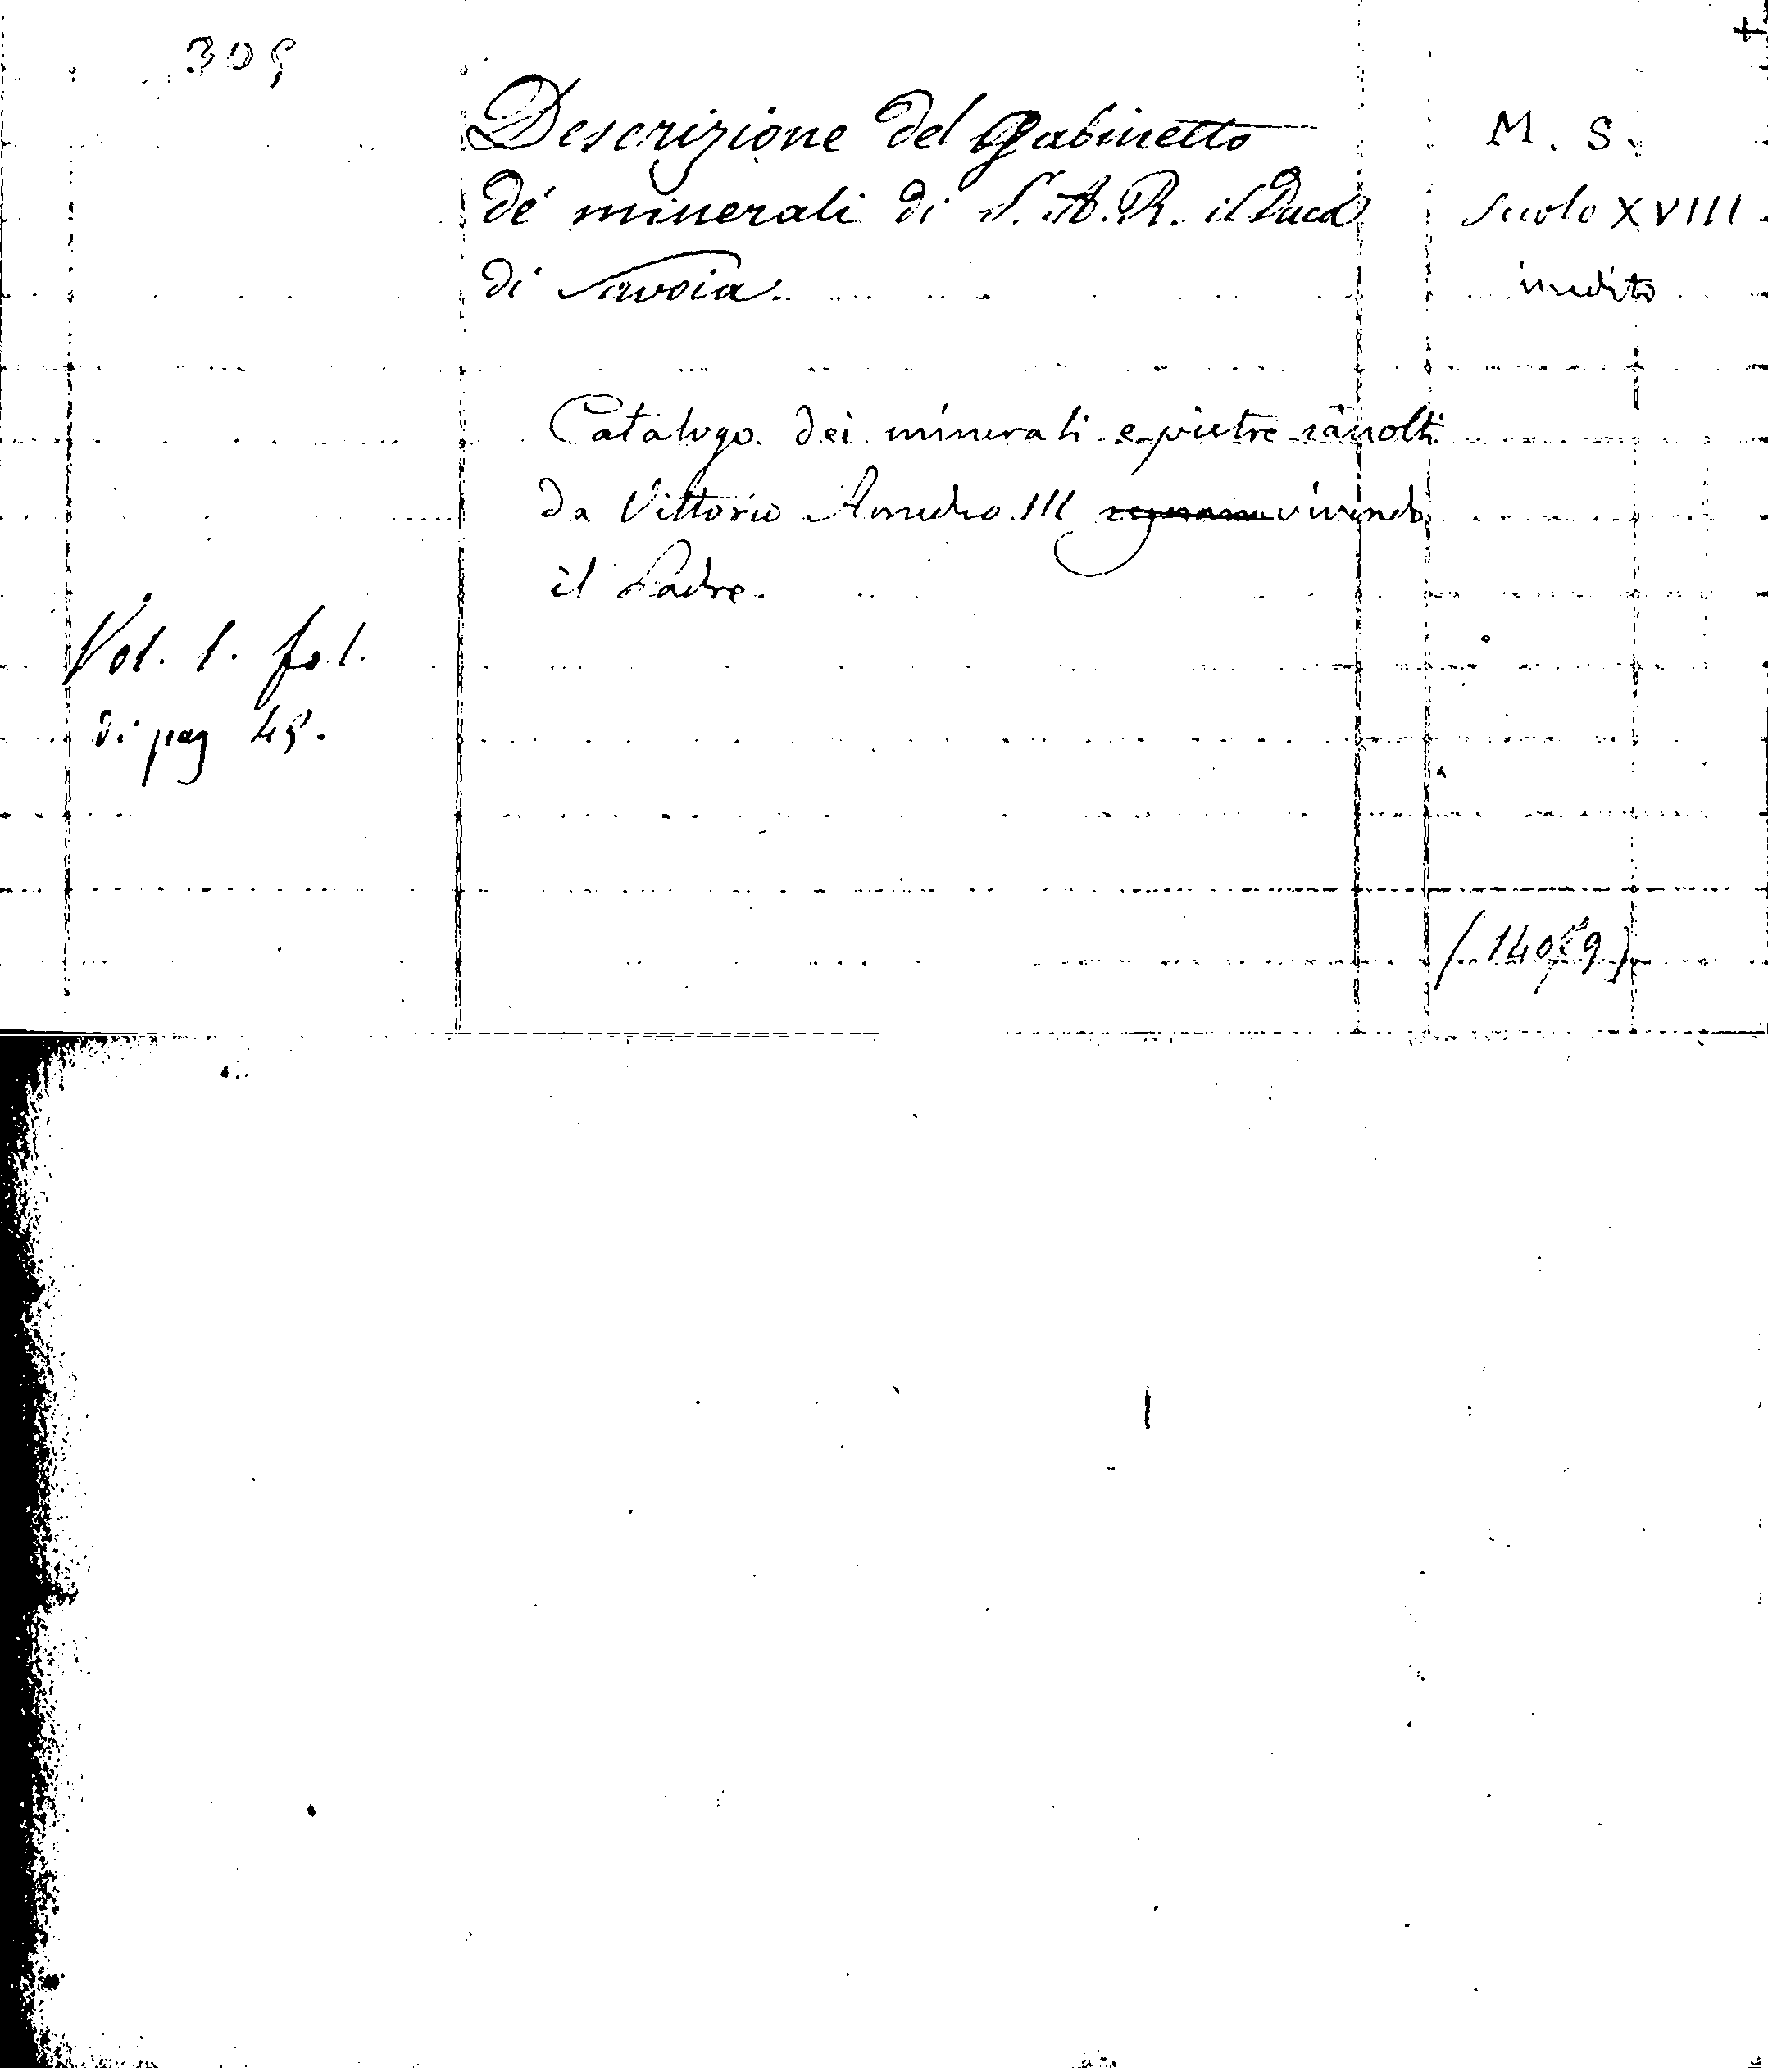 305
Descrizione del Gabinetto
de' minerali di S. A. R. il Duca
di Savoia.
M. S.
Secolo XVIII
inedito
Catalogo dei minerali e pietre raccolti
da Vittorio Amedeo III vivendo
il Padre.
Vol. 1. fol.
di pag 45.
(14059)